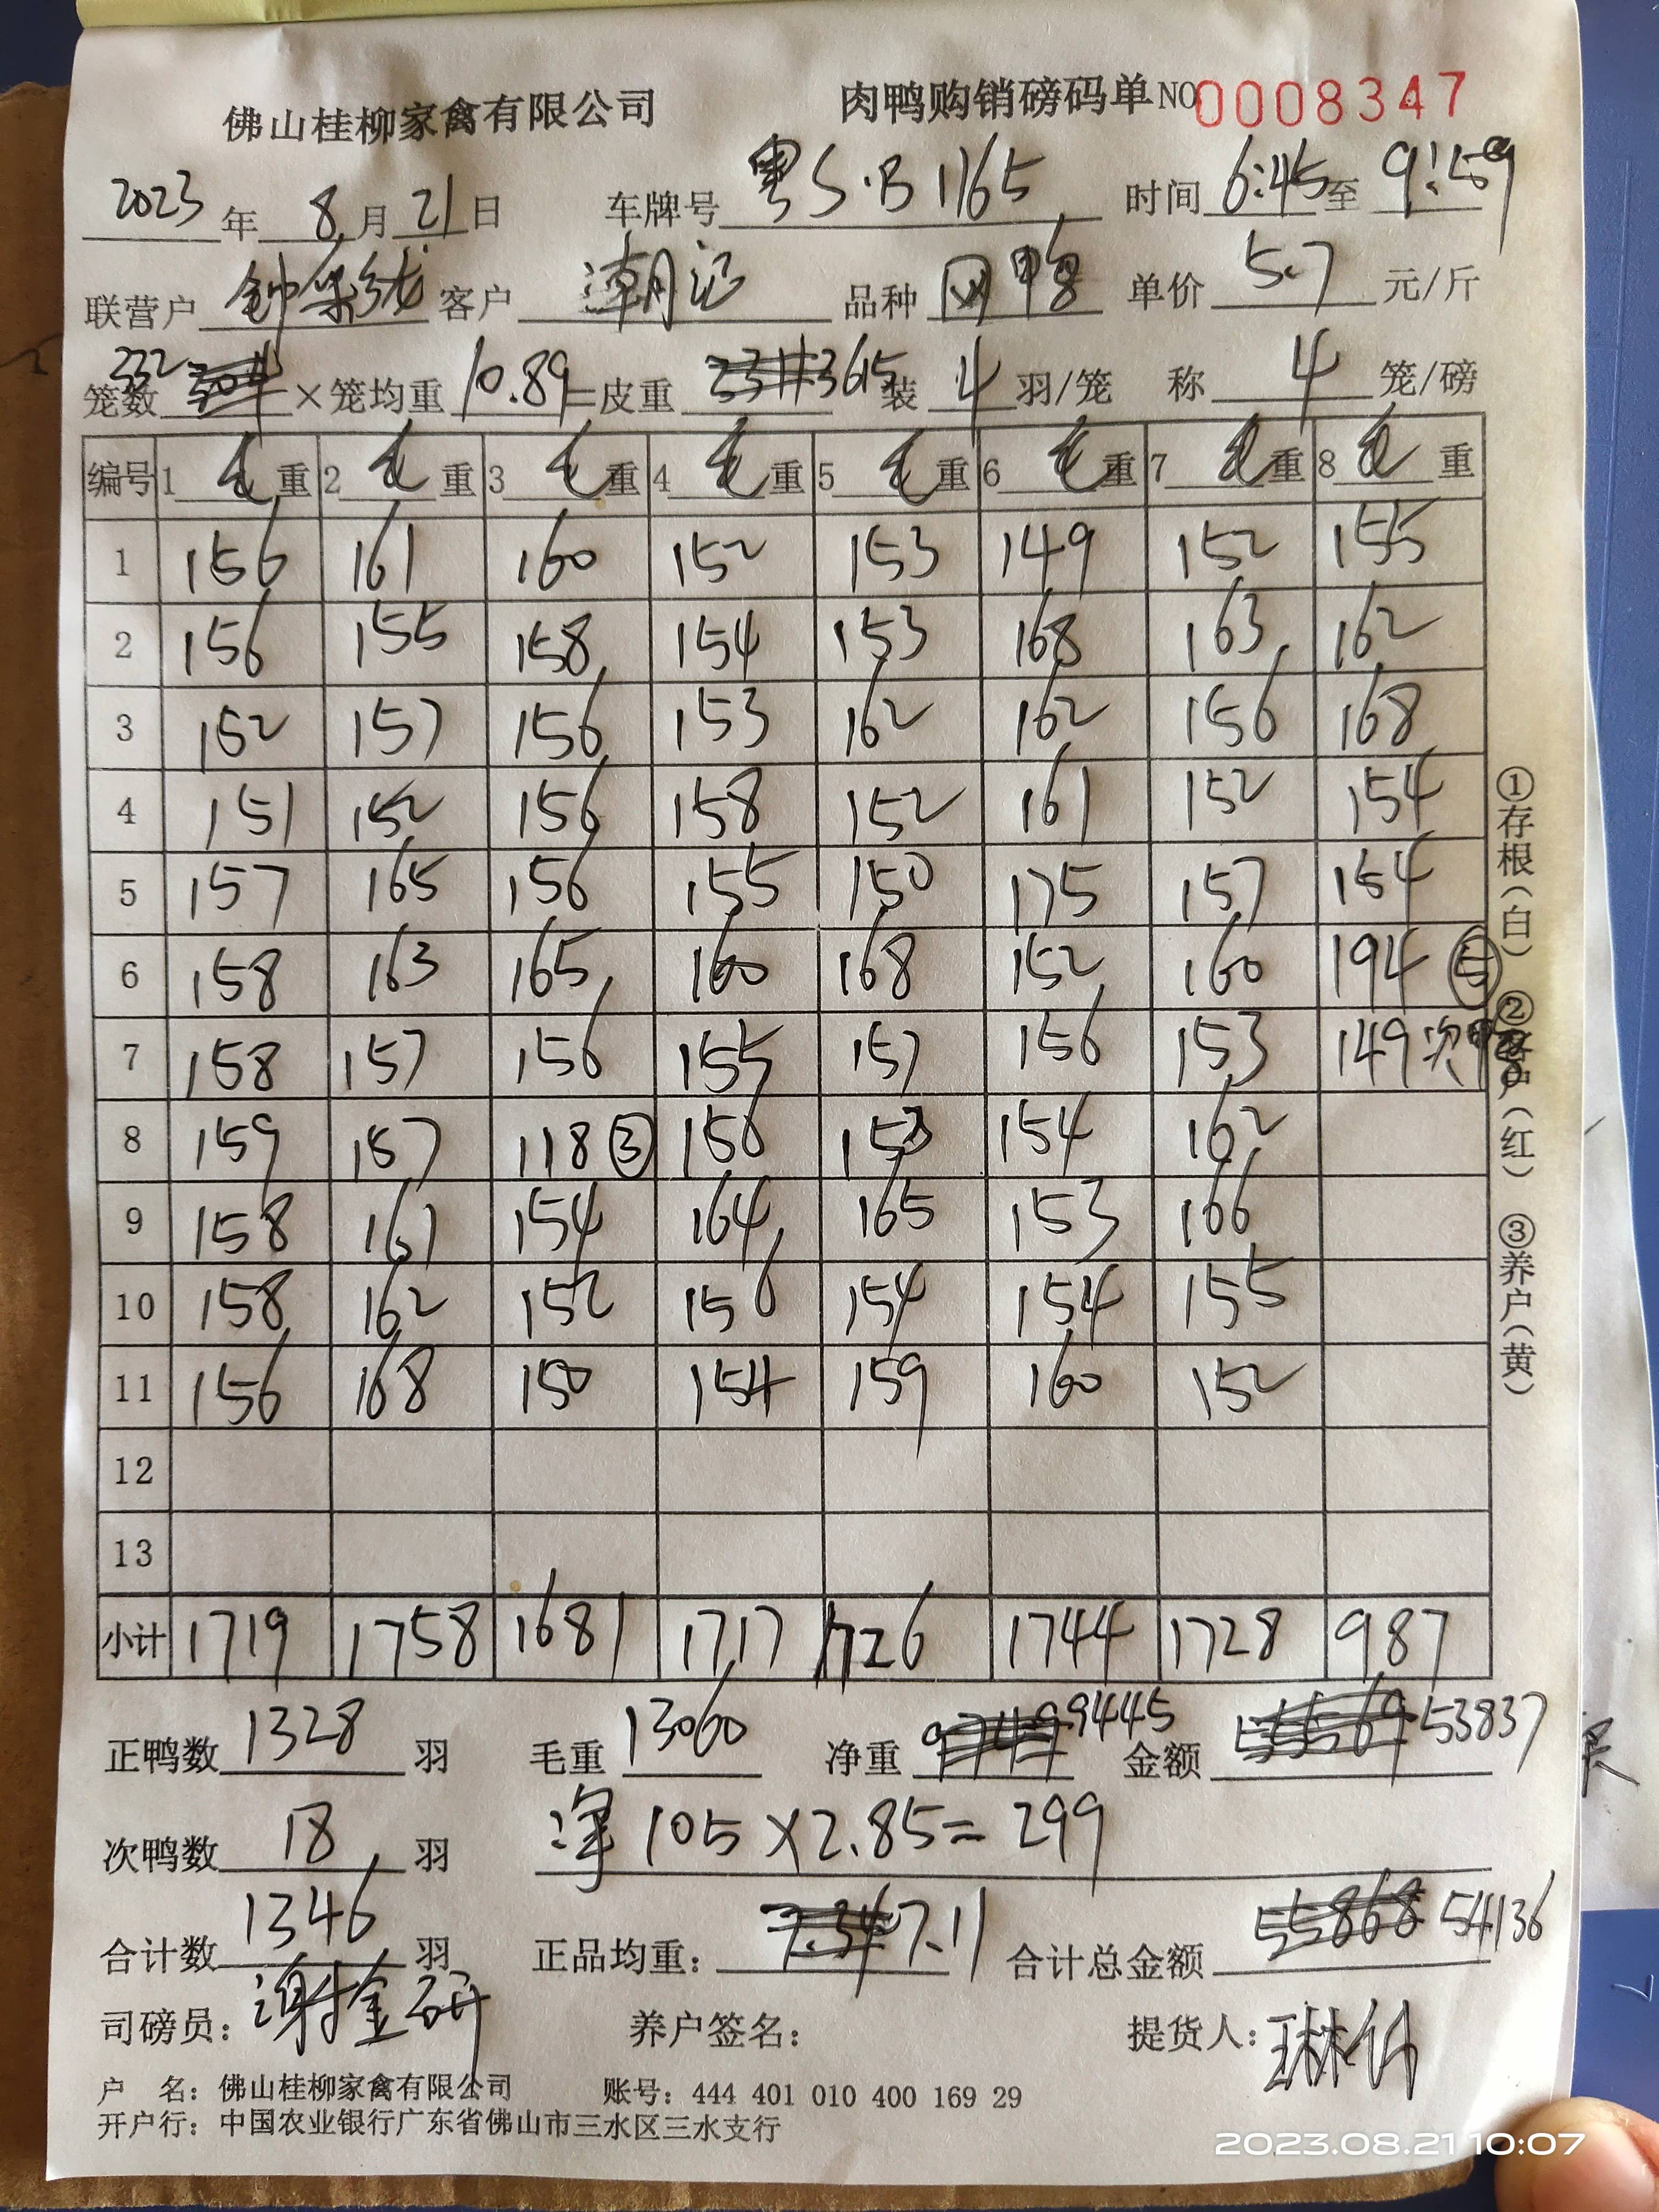 佛山桂柳家禽有限公司 肉鸭购销磅码单 NO 0008347
2023年 8月 21日 车牌号 粤S·B1165 时间 6:45 至 9:59
联营户 钟 客户 潮记 品种 冈鸭 单价 5.7 元/斤
笼数 332 ×笼均重 10.89 =皮重 3615 装 4 羽/笼 称 4 笼/磅
编号 1 毛重 2 毛重 3 毛重 4 毛重 5 毛重 6 毛重 7 毛重 8 毛重
1 156 161 160 152 153 149 152 155
2 156 155 158 154 153 168 163 162
3 152 157 156 153 162 162 156 168
4 151 152 156 158 152 161 152 154
5 157 165 156 155 150 175 157 154
6 158 163 165 160 168 152 160 194 ⑤
7 158 157 156 155 157 156 153 149 次鸭
8 159 157 118 ③ 156 153 154 162
9 158 161 154 164 165 153 166
10 158 162 152 156 154 154 155
11 156 168 150 154 159 160 152
12
13
小计 1719 1758 1681 1717 1726 1744 1728 987
正鸭数 1328 羽 毛重 13060 净重 9445 金额 53837
次鸭数 18 羽 净 105×2.85=299
合计数 1346 羽 正品均重: 7.11 合计总金额 54136
司磅员: 谢 养户签名: 提货人:
户 名: 佛山桂柳家禽有限公司 账号: 444 401 010 400 169 29
开户行: 中国农业银行广东省佛山市三水区三水支行
①存根(白) ②客户(红) ③养户(黄)
2023.08.21 10:07